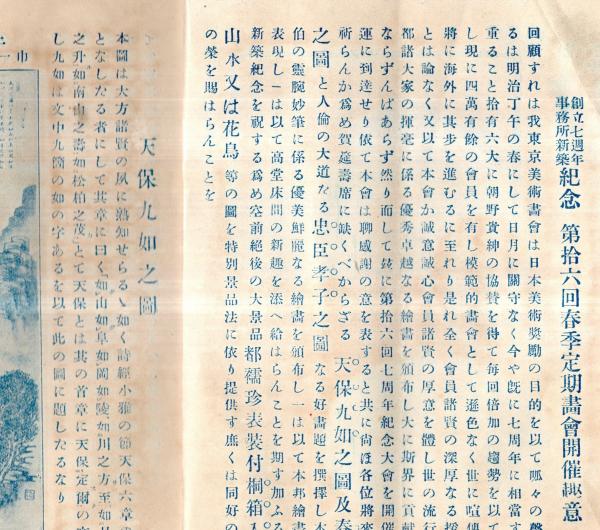 創立七週年
事務所新築
紀念 第拾六回春季定期畫會開催趣意
回顧すれは我東京美術畫會は日本美術奬勵の目的を以て呱々の
るは明治丁午の春にして日月に關守なく今や旣に七周年に相當
重ること拾有六大に朝野貴紳の協賛を得て每回倍加の趨勢を以て
し現に四萬有餘の會員を有し模範的畫會として遜色なく世に喧傳
將に海外に其步を進むるに至れり是れ全く會員諸賢の深厚なる
とは論なく又以て本會か誠意誠心會員諸賢の厚意を體し世の流行
都諸大家の揮毫に係る優秀卓越なる繪畫を頒布し大に斯界に貢獻
ならずんばあらず然り而して玆に第拾六回七周年紀念大會を開催
運に到達せり依て本會は聊感謝の意を表すると共に尙ほ各位將來
祈らんか爲め賀筵壽席に缺くべからざる 天保九如之圖及春
之圖と人倫の大道たる忠臣孝子之圖なる好畫題を撰擇し本
伯の靈腕妙筆に係る優美鮮麗なる繪畫を頒布し一は以て本邦繪畫
表現し一は以て高堂床間の新趣を添へ給はらんことを期す加ふる
新築紀念を祝する爲め空前絕後の大景品 都襦珍表裝付桐箱入
山水又は花鳥 等の圖を特別景品法に依り提供す庶くは同好の
の榮を賜はらんことを
天保九如之圖
本圖は大方諸賢の夙に熟知せらるゝ如く詩經小雅の節天保六章
となしたる者にして其章に曰く「如山如阜如岡如陵如川之方至如月
之升如南山之壽如松柏之茂」とて天保とは其の首章に天保定爾の
し九如は文中九箇の如の字あるを以て此の圖に題したるなり